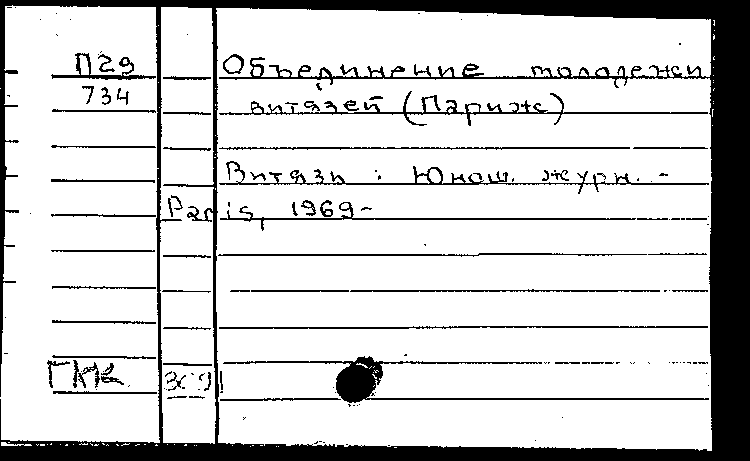 П29
734
Объединение молодежи
витязей (Париж)
Витязь : Юнош. журн. -
Paris, 1969-
ГКК